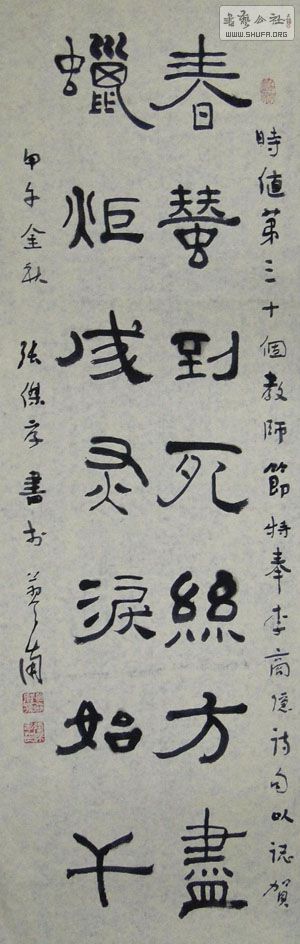 書藝公社
WWW.SHUFA.ORG
時值第三十個教師節特奉李商隱詩句以誌賀
春蠶到死絲方盡
蠟炬成灰淚始干
甲午金秋 張傑書於南